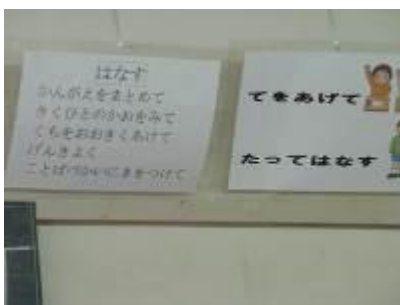 はなす
かんがえをまとめて
きくひとのかおをみて
くちをおおきくあけて
げんきよく
ことばづかいにきをつけて
てをあげて
たってはなす